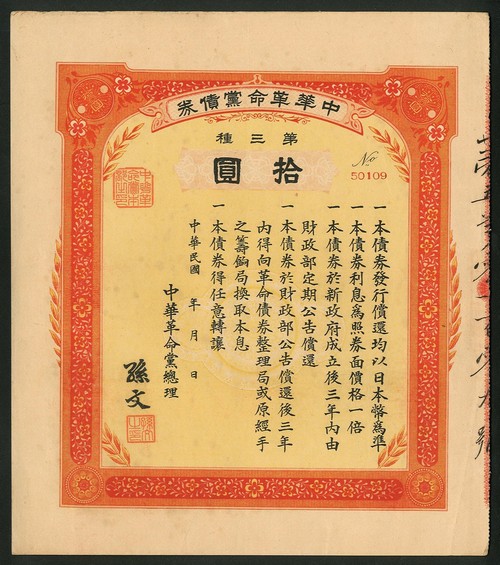 中華革命黨債券
第三種
拾圓
No
50109
一本債券發行償還均以日本幣爲準
一本債券利息爲照券面價格一倍
一本債券於新政府成立後三年內由
財政部定期公告償還
一本債券於財政部公告償還後三年
內得向革命債券整理局或原經手
之籌餉局換取本息
一本債券得任意轉讓
中華民國 年 月 日
中華革命黨總理
孫文